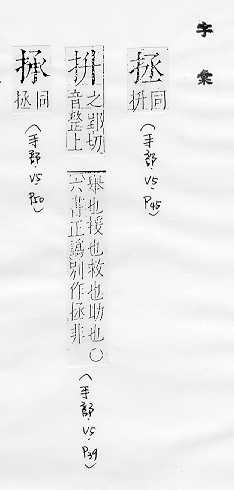 字彙
拯
同
抍
(手部.V5.P45)
抍
之郢切
音整上
舉也援也救也助也○
六書正譌別作拯非
(手部.V5.P39)
同
拯
(手部.V5.P50)